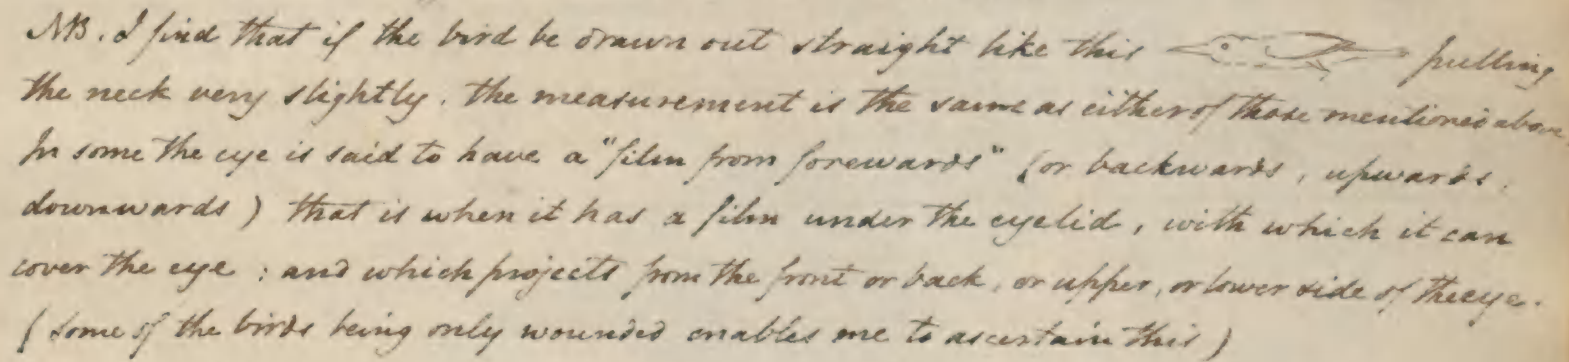 NB. I find that if the bird be drawn out straight like this pulling
the neck very slightly. the measurement is the same as either of those mentioned above.
In some the eye is said to have a "film from forewards" (or backwards, upwards,
downwards) that is when it has a film under the eyelid, with which it can
cover the eye; and which projects from the front or back, or upper, or lower side of the eye.
(Some of the birds being only wounded enables me to ascertain this)